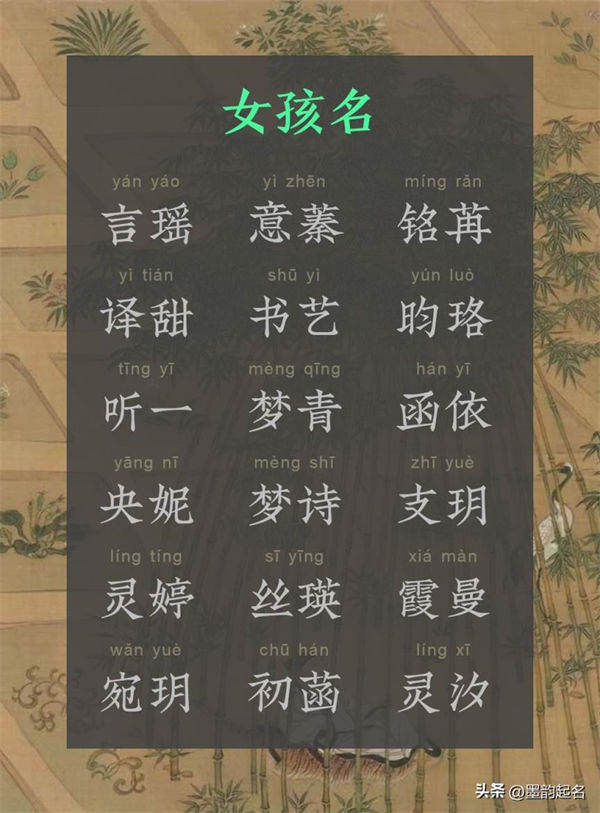 女孩名
yán yáo yì zhēn míng rǎn
言瑶 意蓁 铭苒
yì tián shū yì yún luò
译甜 书艺 昀珞
tīng yī mèng qīng hán yī
听一 梦青 函依
yāng nī mèng shī zhī yuè
央妮 梦诗 支玥
líng tíng sī yīng xiá màn
灵婷 丝瑛 霞曼
wǎn yuè chū hán líng xī
宛玥 初菡 灵汐
头条 @墨韵起名